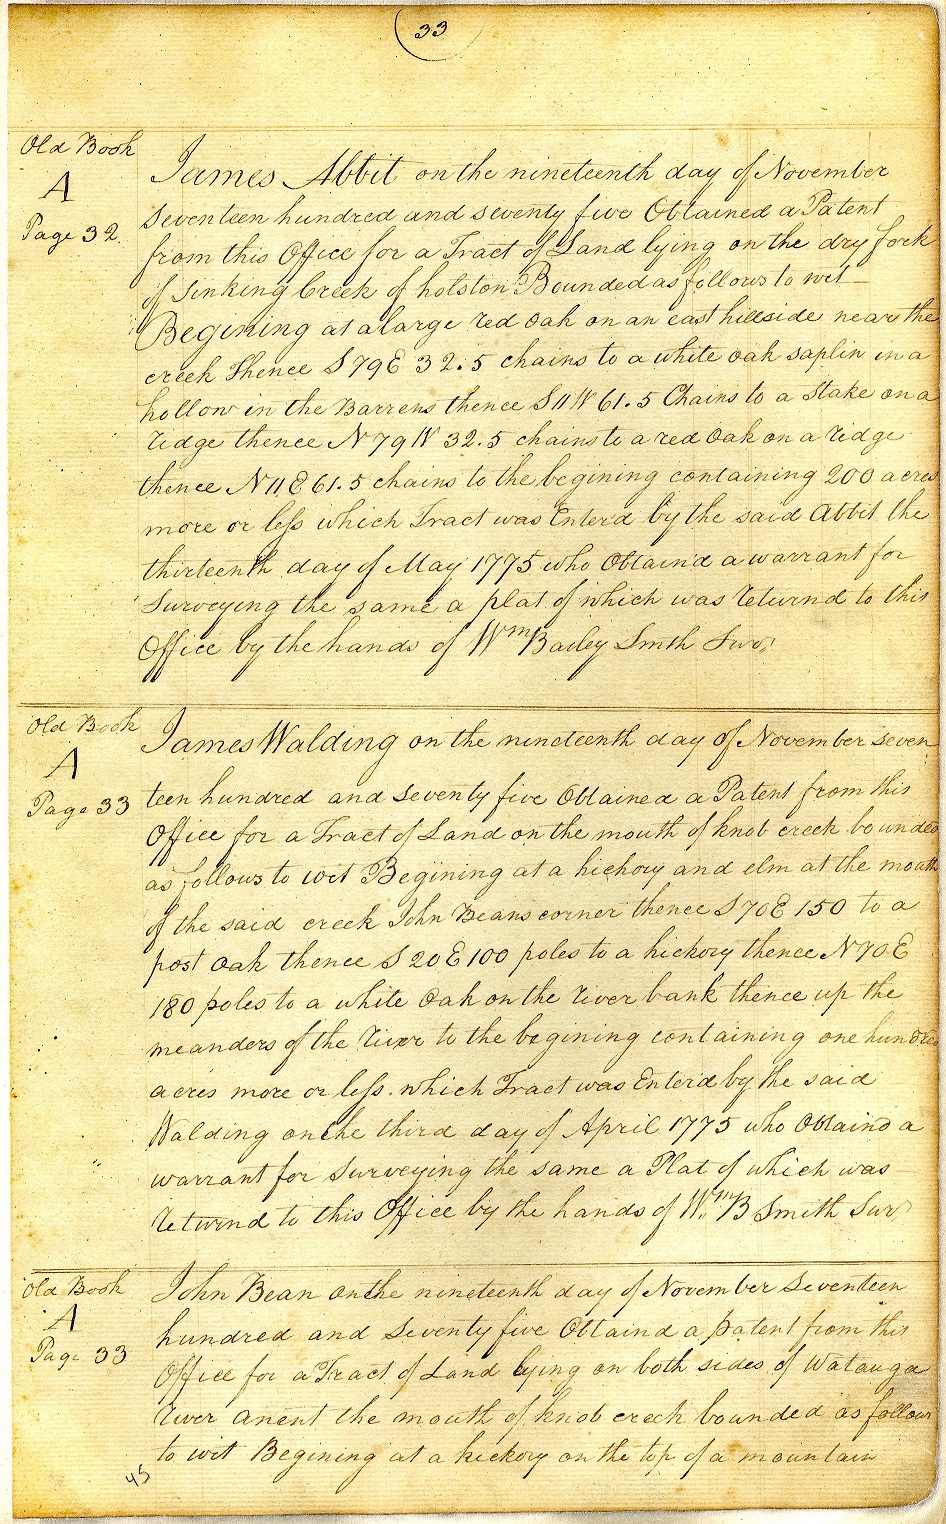 33
Old Book
A
Page 32
James Abbit on the nineteenth day of November
seventeen hundred and seventy five Obtained a Patent
from this Office for a Tract of Land lying on the dry fork
of Sinking Creek of holston Bounded as follows to wit
Begining at a large red oak on an east hillside near the
creek Thence S 79 E 32.5 chains to a white oak saplin in a
hollow in the Barrens thence S 11 W 61.5 Chains to a Stake on a
ridge thence N 79 W 32.5 chains to a red Oak on a ridge
thence N 11 E 61.5 chains to the begining containing 200 acres
more or less which Tract was Enterd by the said Abbit the
thirteenth day of May 1775 who Obtaind a warrant for
Surveying the same a plat of which was returnd to this
Office by the hands of Wm Bailey Smth Svr
Old Book
A
Page 33
James Walding on the nineteenth day of November seven
teen hundred and seventy five Obtained a Patent from this
Office for a Tract of Land on the mouth of knob creek bounded
as follows to wit Begining at a hickory and elm at the mouth
of the said creek John Beans corner thence S 70 E 150 to a
post oak thence S 20 E 100 poles to a hickory thence N 70 E
180 poles to a white Oak on the river bank thence up the
meanders of the river to the begining containing one hundred
acres more or less which Tract was Enterd by the said
Walding on the third day of April 1775 who Obtaind a
warrant for surveying the same a Plat of which was
returnd to this Office by the hands of Wm B Smith Sur
Old Book
A
Page 33
John Bean on the nineteenth day of November Seventeen
hundred and seventy five Obtaind a patent from this
Office for a Tract of Land lying on both sides of Watauga
river anent the mouth of knob creek bounded as follows
to wit Begining at a hickory on the top of a mountain
45